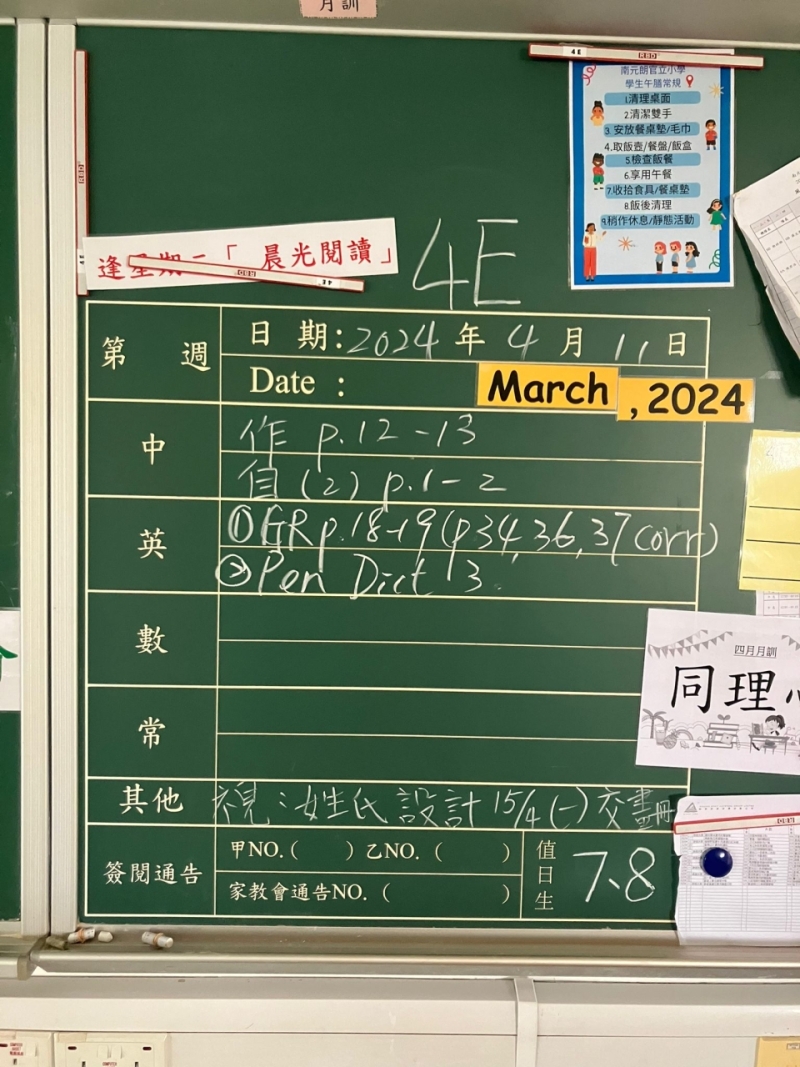 月訓
4E
南元朗官立小學
學生午膳常規
1.清理桌面
2.清潔雙手
3. 安放餐桌墊/毛巾
4.取飯壺/餐盤/飯盒
5.檢查飯餐
6.享用午餐
7.收拾食具/餐桌墊
8.飯後清理
9.稍作休息/靜態活動
逢星期二「 晨光閱讀」
4E
4E
第 週
日 期:2024 年 4 月 11 日
Date :
March , 2024
中
作 p.12-13
(2) p.1-2
英
①GR p.18-19 (p34, 36, 37 corr)
②Pen Dict 13
數
常
四月月訓
同理心
其他
視:姓氏設計 15/4 (一) 交畫冊
簽閱通告
甲NO.( ) 乙NO. ( )
家教會通告NO. ( )
值日生
7、8